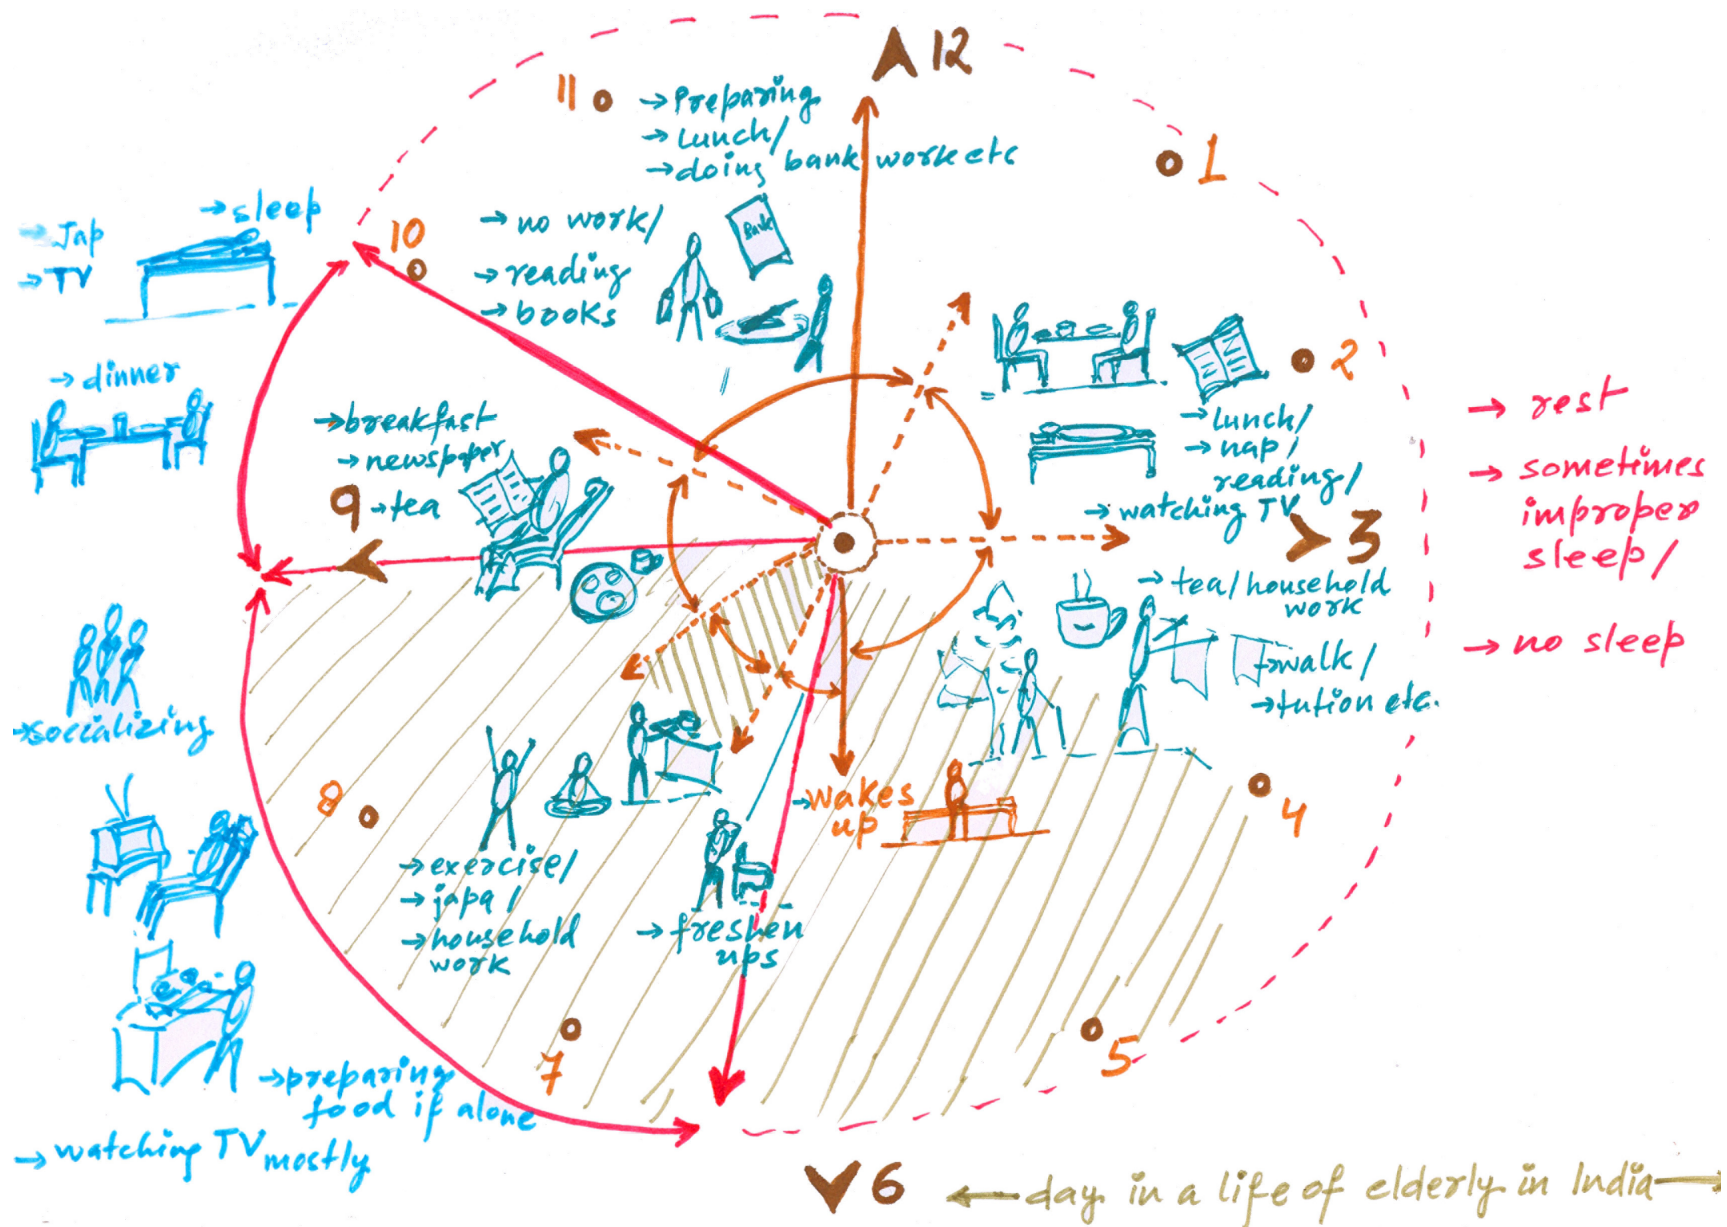 12
11
→ Preparing
→ Lunch/
→ doing bank work etc
1
→ sleep
→ Jap
→ TV
10
→ no work/
→ reading
→ books
Bank
2
→ dinner
→ breakfast
→ newspaper
9 → tea
→ lunch/
→ nap/
reading/
→ watching TV
3
→ rest
→ sometimes
improper
sleep/
→ no sleep
→ tea/household
work
→ walk/
→ tution etc.
→ socializing
8
→ wakes
up
4
→ exercise/
→ japa/
→ household
work
→ freshen
ups
7
5
→ preparing
food if alone
→ watching TV mostly
6
← day in a life of elderly in India →